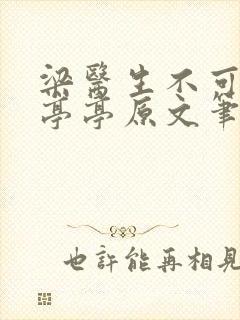 梁醫生不可
亭亭原文筆
也許能再相見